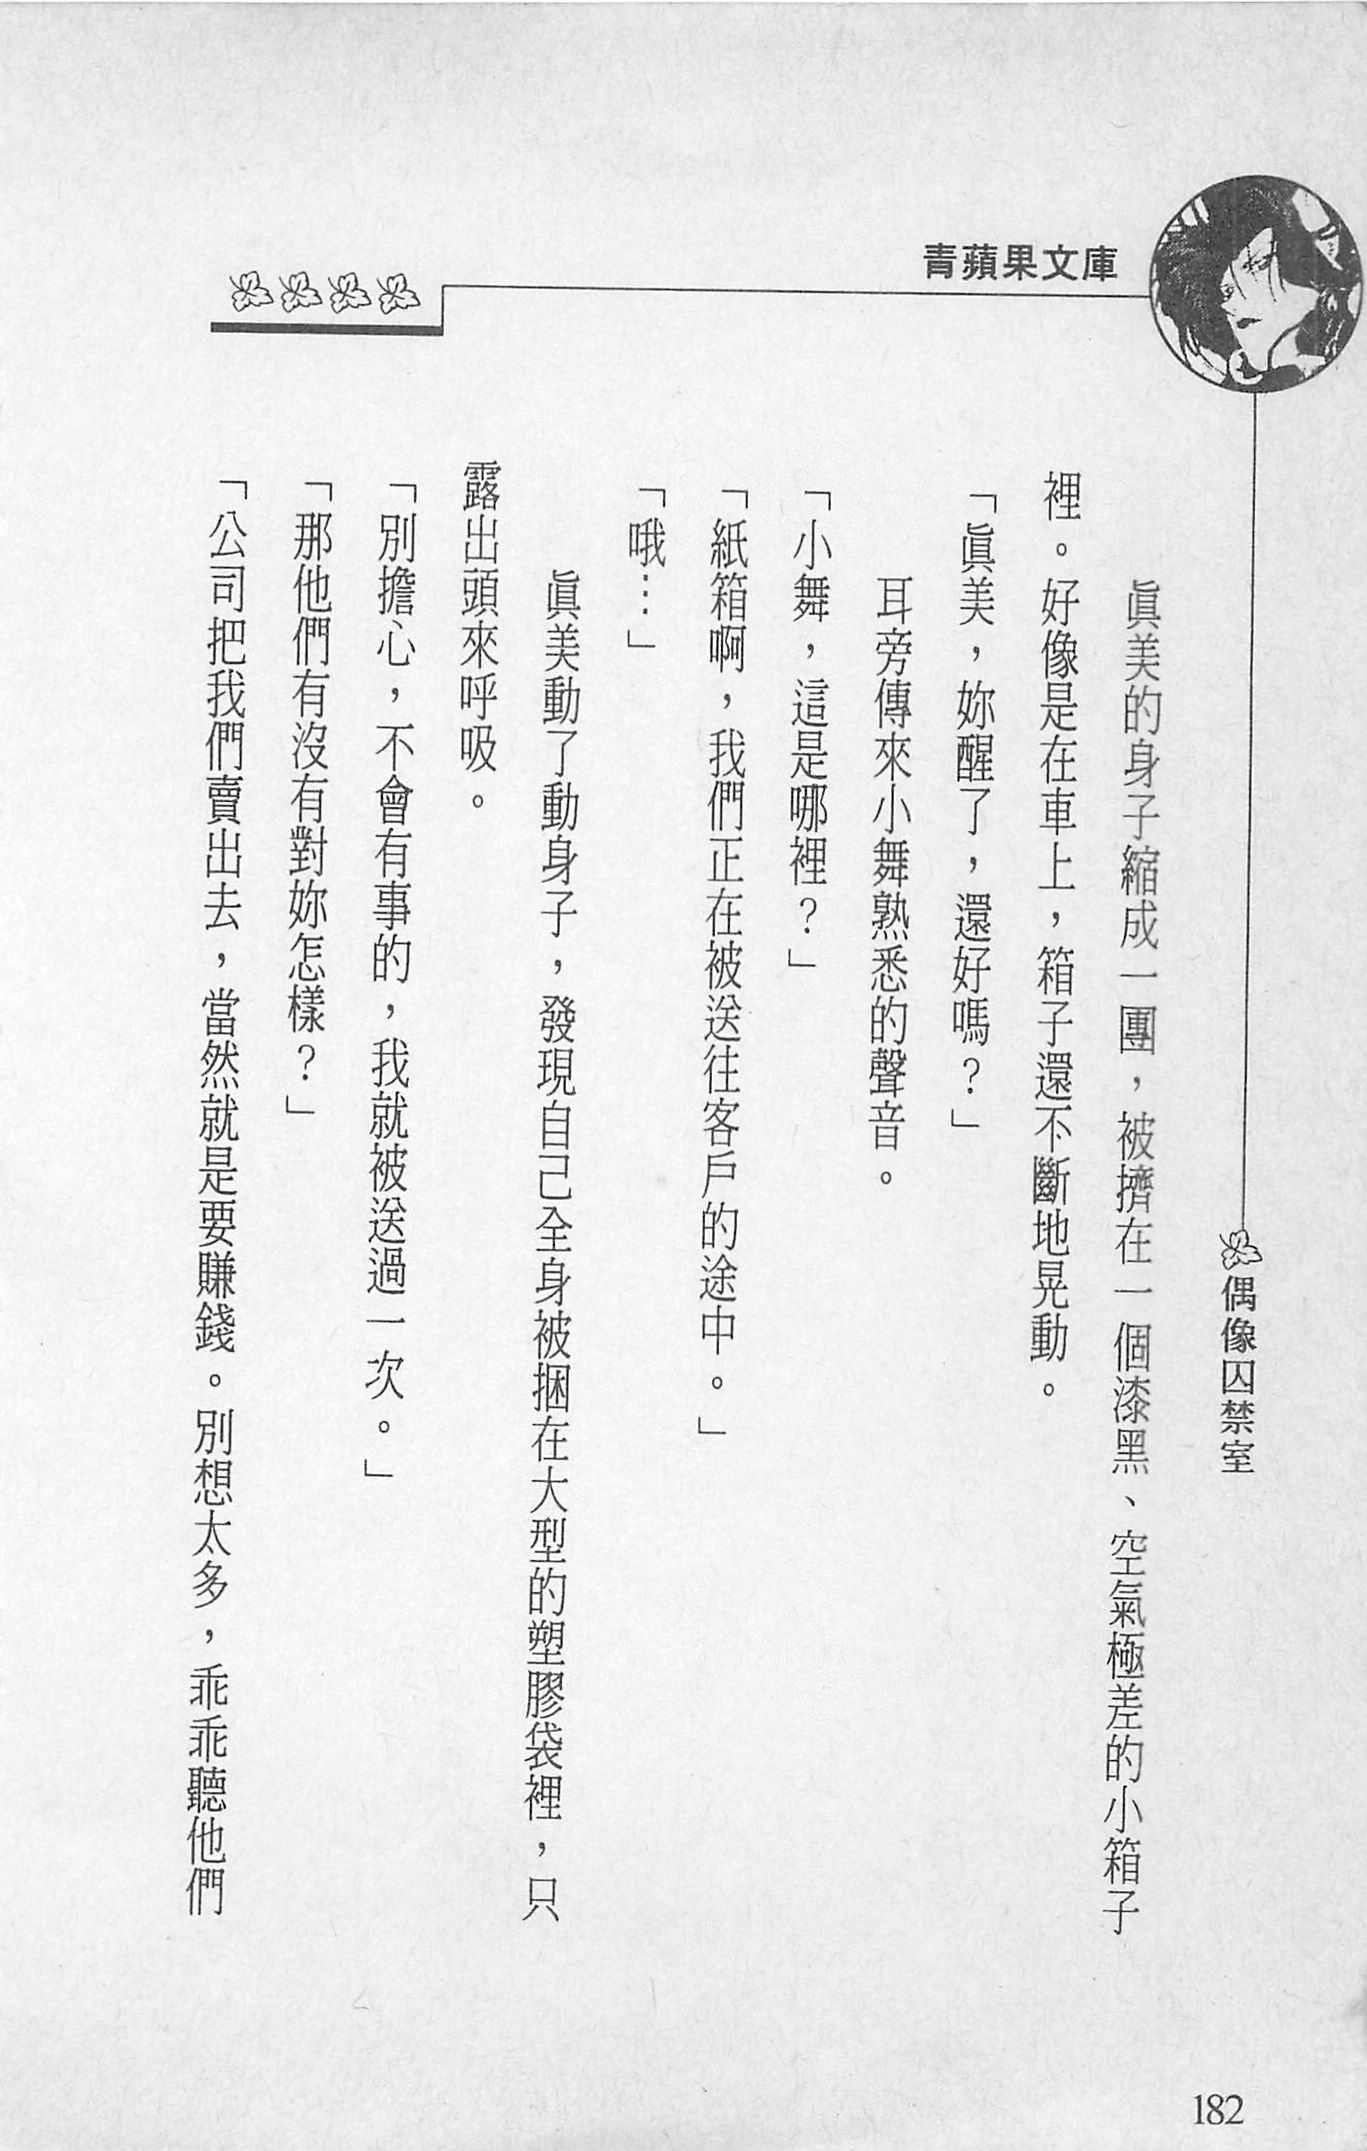 青蘋果文庫
偶像囚禁室
眞美的身子縮成一團，被擠在一個漆黑、空氣極差的小箱子
裡。好像是在車上，箱子還不斷地晃動。
「眞美，妳醒了，還好嗎？」
耳旁傳來小舞熟悉的聲音。
「小舞，這是哪裡？」
「紙箱啊，我們正在被送往客戶的途中。」
「哦…」
眞美動了動身子，發現自己全身被捆在大型的塑膠袋裡，只
露出頭來呼吸。
「別擔心，不會有事的，我就被送過一次。」
「那他們有沒有對妳怎樣？」
「公司把我們賣出去，當然就是要賺錢。別想太多，乖乖聽他們
182